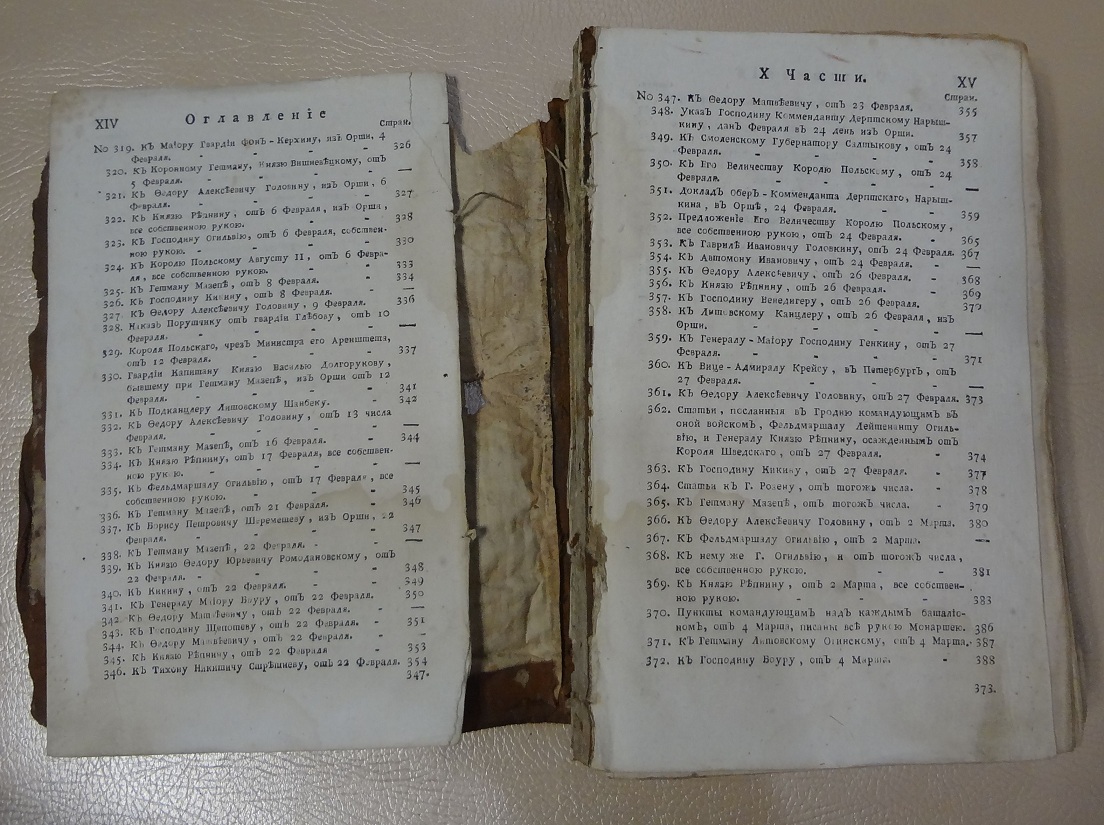 XIV
Оглавленіе
Стран.
No 319. КЪ Маіору Гвардіи фонЪ - Керхину, изЪ Орши, 4
Февраля. - - - - 326
320. КЪ Коронному Гетману, Князю Вишневѣцкому, отЪ
5 Февраля. - - - - —
321. КЪ Ѳедору Алексѣевичу Головину, изЪ Орши, 6
Февраля. - - - - 327
322. КЪ Князю Рѣпнину, отЪ 6 Февраля, изЪ Орши,
все собственною рукою. - - 328
323. КЪ Господину Огильвію, отЪ 6 Февраля, собствен-
ною рукою. - - - - 330
324. КЪ Королю Польскому Августу II, отЪ 6 Февра-
ля, все собственною рукою. - - 333
325. КЪ Гетману Мазепѣ, отЪ 8 Февраля. - 334
326. КЪ Господину Кикину, отЪ 8 Февраля. - —
327. КЪ Ѳедору Алексѣевичу Головину, 9 Февраля. 336
328. НаказЪ Порутчику отЪ гвардіи Глѣбову, отЪ 10
Февраля. - - - - —
329. Короля Польскаго, чрезЪ Министра его Аренштета,
отЪ 12 Февраля. - - - 337
330. Гвардіи Капитану Князю Василью Долгорукову,
бывшему при Гетману Мазепѣ, изЪ Орши отЪ 12
Февраля. - - - - 341
331. КЪ Подканцлеру Литовскому Шанбеку. - 342
332. КЪ Ѳедору Алексѣевичу Головину, отЪ 13 числа
Февраля. - - - - —
333. КЪ Гетману Мазепѣ, отЪ 16 Февраля. - 344
334. КЪ Князю Рѣпнину, отЪ 17 Февраля, все собствен-
ною рукою. - - - - —
335. КЪ Фельдмаршалу Огильвію, отЪ 17 Февраля, все
собственною рукою. - - - 345
336. КЪ Гетману Мазепѣ, отЪ 21 Февраля. - 346
337. КЪ Борису Петровичу Шереметеву, изЪ Орши, 22
Февраля. - - - - 347
338. КЪ Гетману Мазепѣ, 22 Февраля. - - —
339. КЪ Князю Ѳедору Юрьевичу Ромодановскому, отЪ
22 Февраля. - - - - 348
340. КЪ Кикину, отЪ 22 Февраля. - - 349
341. КЪ Генералу Маіору Боуру, отЪ 22 Февраля. 350
342. КЪ Ѳедору Матвѣевичу, отЪ 22 Февраля. - —
343. КЪ Господину Щепотеву, отЪ 22 Февраля. - 351
344. КЪ Ѳедору Матвѣевичу, отЪ 22 Февраля. - —
345. КЪ Князю Рѣпнину, отЪ 22 Февраля - 353
346. КЪ Тихону Никитичу Стрѣшневу, отЪ 22 Февраля. 354
347.
X Части.
XV
Стран.
No 347. КЪ Ѳедору Матвѣевичу, отЪ 23 Февраля. 355
348. УказЪ Господину Комменданту Дерптскому Нарыш-
кину, данЪ Февраля вЪ 24 день изЪ Орши. 357
349. КЪ Смоленскому Губернатору Салтыкову, отЪ 24
Февраля. - - - - 358
350. КЪ Его Величеству Королю Польскому, отЪ 24
Февраля. - - - - —
351. ДокладЪ ОберЪ - Комменданта Дерптскаго, Нарыш-
кина, вЪ Оршѣ, 24 Февраля. - - 359
352. Предложеніе Его Величеству Королю Польскому,
все собственною рукою, отЪ 24 Февраля. - 365
353. КЪ Гаврилѣ Ивановичу Головкину, отЪ 24 Февраля. 367
354. КЪ Автомону Ивановичу, отЪ 24 Февраля. - —
355. КЪ Ѳедору Алексѣевичу, отЪ 26 Февраля. - 368
356. КЪ Князю Рѣпнину, отЪ 26 Февраля. - 369
357. КЪ Господину Венедигеру, отЪ 26 Февраля. - 370
358. КЪ Литовскому Канцлеру, отЪ 26 Февраля, изЪ
Орши. - - - - —
359. КЪ Генералу - Маіору Господину Генкину, отЪ 27
Февраля. - - - - 371
360. КЪ Вице - Адмиралу Крейсу, вЪ ПетербургЪ, отЪ
27 Февраля. - - - - —
361. КЪ Ѳедору Алексѣевичу Головину, отЪ 27 Февраля. 373
362. Статьи, посланныя вЪ Гродню командующимЪ вЪ
оной войскомЪ, Фельдмаршалу Лейтенанту Огиль-
вію, и Генералу Князю Рѣпнину, осажденнымЪ отЪ
Короля Шведскаго, отЪ 27 Февраля. - 374
363. КЪ Господину Кикину, отЪ 27 Февраля. - 377
364. Статьи кЪ Г. Розену, отЪ тогожЪ числа. - 378
365. КЪ Гетману Мазепѣ, отЪ тогожЪ числа. - 379
366. КЪ Ѳедору Алексѣевичу Головину, отЪ 2 Марта. 380
367. КЪ Фельдмаршалу Огильвію, отЪ 2 Марта. —
368. КЪ нему же Г. Огильвію, и отЪ тогожЪ числа,
все собственною рукою. - - 381
369. КЪ Князю Рѣпнину, отЪ 2 Марта, все собствен-
ною рукою. - - - - 383
370. Пункты командующимЪ надЪ каждымЪ баталіо-
номЪ, отЪ 4 Марта, писаны всѣ рукою Монаршею. 386
371. КЪ Гетману Литовскому Огинскому, отЪ 4 Марта. - 387
372. КЪ Господину Боуру, отЪ 4 Марта. - 388
373.